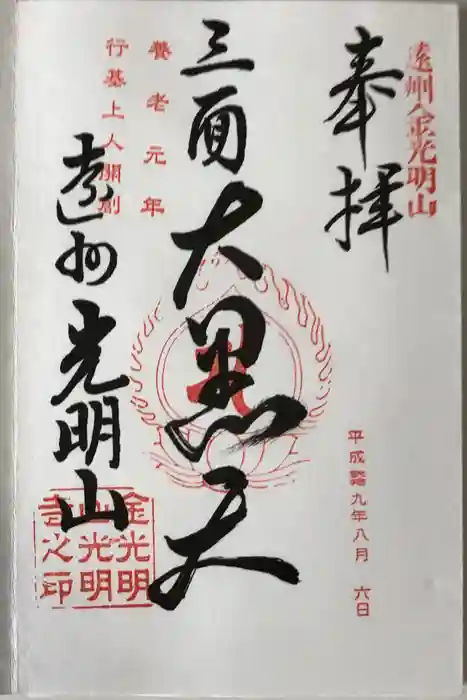 遠州金光明山
奉拝
平成 九年八月 六日
三面大黒天
養老元年
行基上人開創
遠州光明山
金光明
山光明
寺之印